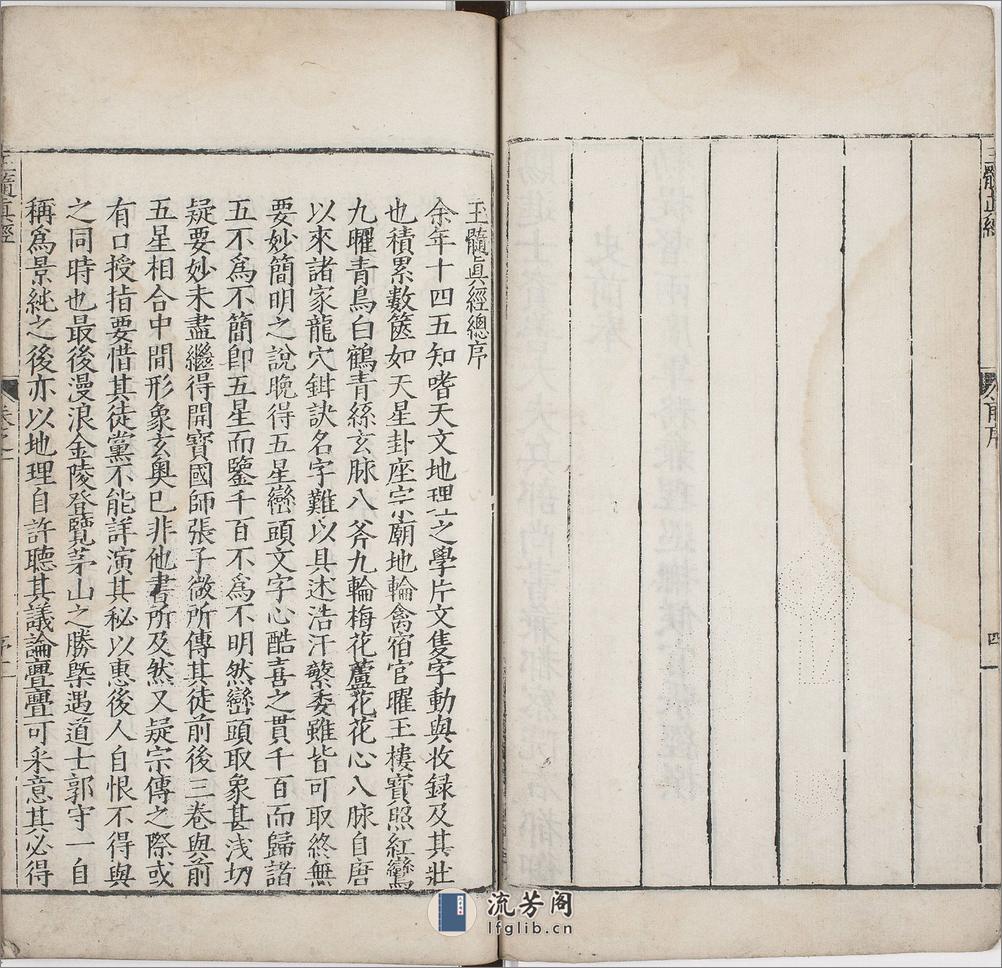 玉髓眞經
前序
四
玉髓眞經總序
余年十四五知嗜天文地理之學片文隻字動與收録及其壯
也積累數篋如天星卦座宗廟地輪禽宿官曜玉樓寶照紅鸞
九曜青鳥白鶴青絲玄脉八斧九輪梅花蘆花花心八脉自唐
以來諸家龍穴鉗訣名字難以具述浩汗繁委雖皆可取終無
要妙簡明之說晚得五星巒頭文字心酷喜之貫千百而歸諸
五不爲不簡卽五星而鑒千百不爲不明然巒頭取象甚浅切
疑要妙未盡繼得開寶國師張子微所傳其徒前後三卷與前
五星相合中間形象玄奥已非他書所及然又疑宗傳之際或
有口授指要惜其徒黨不能詳演其秘以惠後人自恨不得與
之同時也最後漫浪金陵登覽茅山之勝槩遇道士郭守一自
稱爲景純之後亦以地理自許聽其議論亹亹可采意其必得
玉髓眞經
卷之一
流芳阁
lfglib.cn